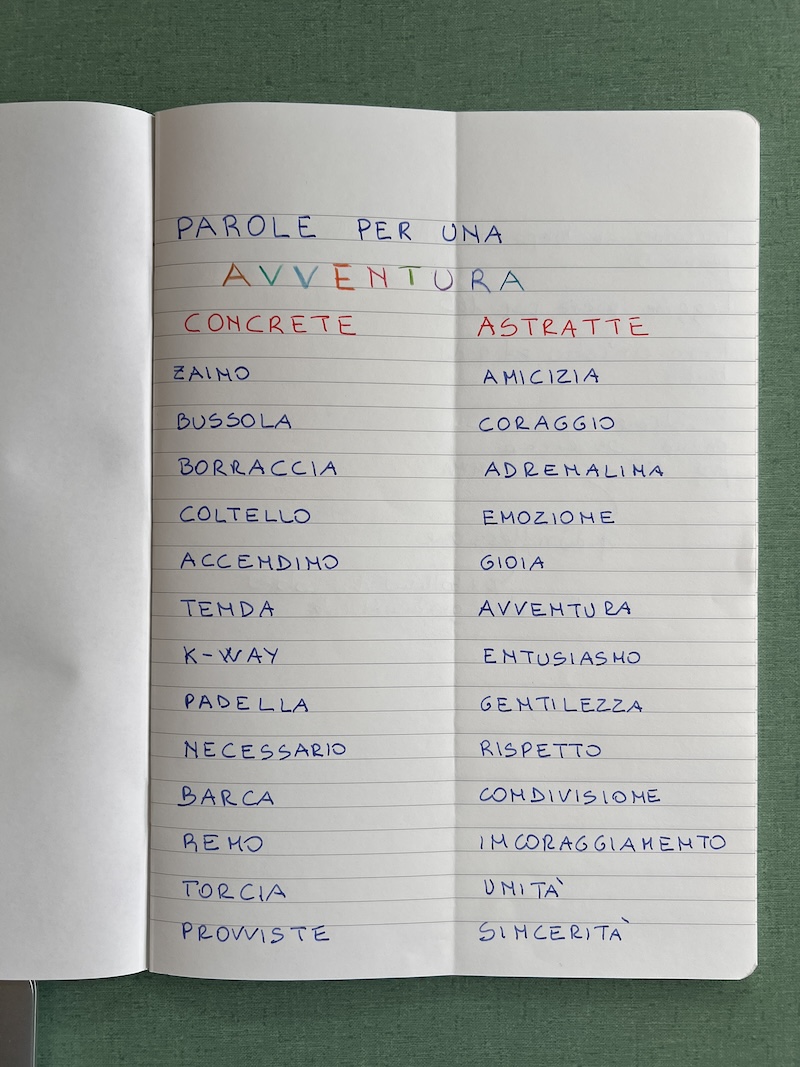 PAROLE PER UNA
AVVENTURA
CONCRETE ASTRATTE
ZAINO AMICIZIA
BUSSOLA CORAGGIO
BORRACCIA ADRENALINA
COLTELLO EMOZIONE
ACCENDINO GIOIA
TENDA AVVENTURA
K-WAY ENTUSIASMO
PADELLA GENTILEZZA
NECESSARIO RISPETTO
BARCA CONDIVISIONE
REMO INCORAGGIAMENTO
TORCIA UNITÀ
PROVVISTE SINCERITÀ